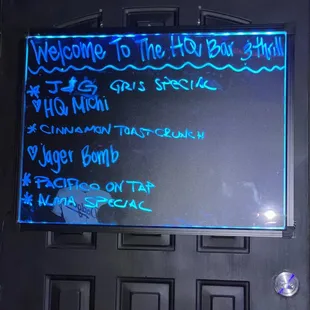 Welcome To The HQ Bar & thrill
* J&G GRIS SPECIAL
♡ HQ Michi
* CINNAMON TOAST CRUNCH
♡ Jager Bomb
* PACIFICO ON TAP
* ALMA SPECIAL